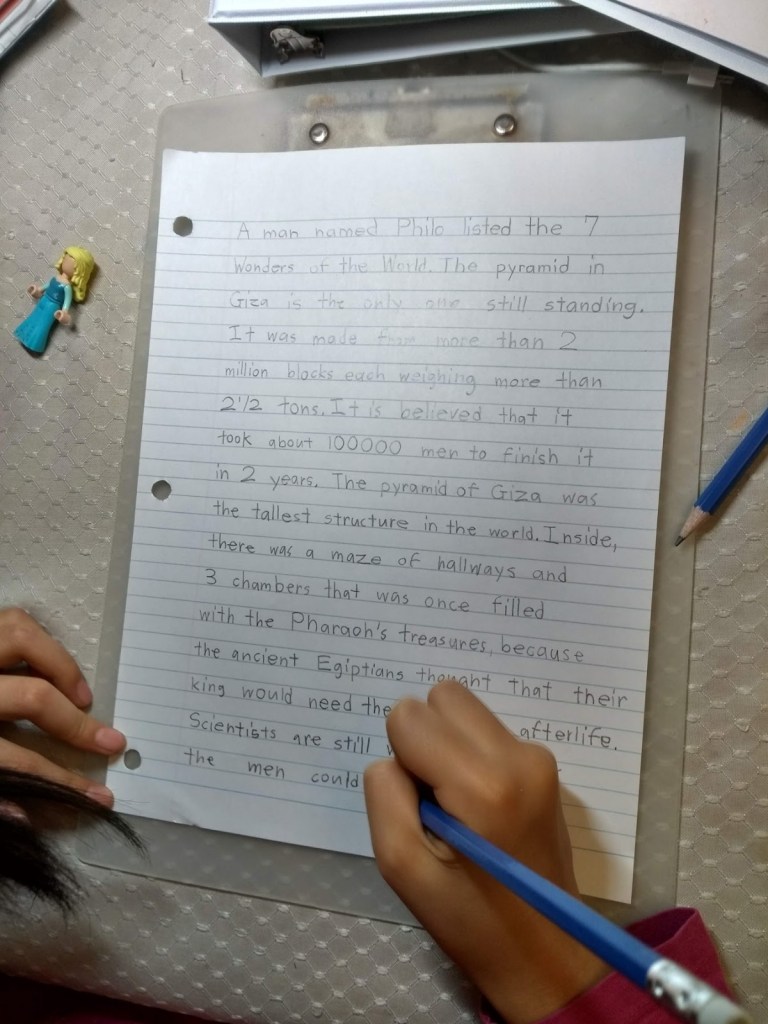 A man named Philo listed the 7
Wonders of the World. The pyramid in
Giza is the only one still standing.
It was made from more than 2
million blocks each weighing more than
2 1/2 tons. It is believed that it
took about 100000 men to finish it
in 2 years. The pyramid of Giza was
the tallest structure in the world. Inside,
there was a maze of hallways and
3 chambers that was once filled
with the Pharaoh's treasures, because
the ancient Egiptians thought that their
king would need afterlife.
Scientists are still
the men could